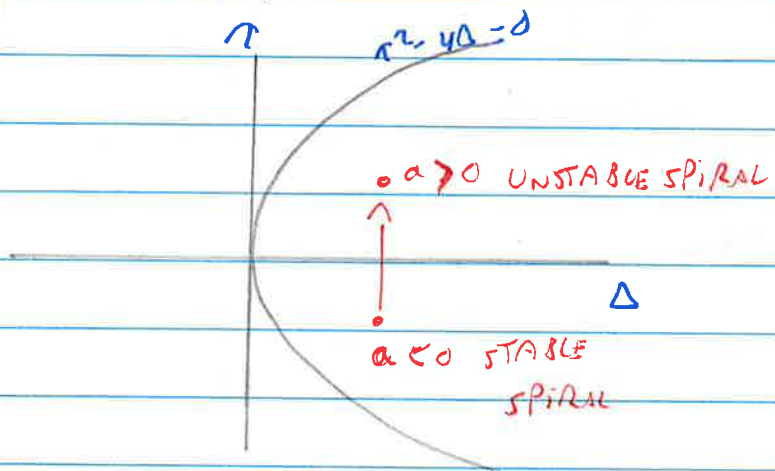 τ
τ² - 4Δ = 0
a > 0 UNSTABLE SPIRAL
Δ
a < 0 STABLE
SPIRAL